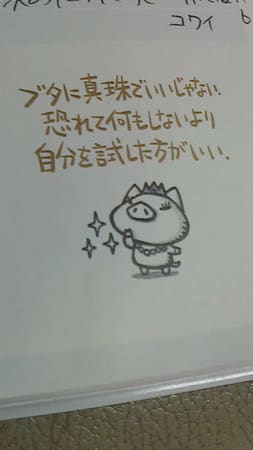 コワイ b
ブタに真珠でいいじゃない.
恐れて何もしないより
自分を試した方がいい.